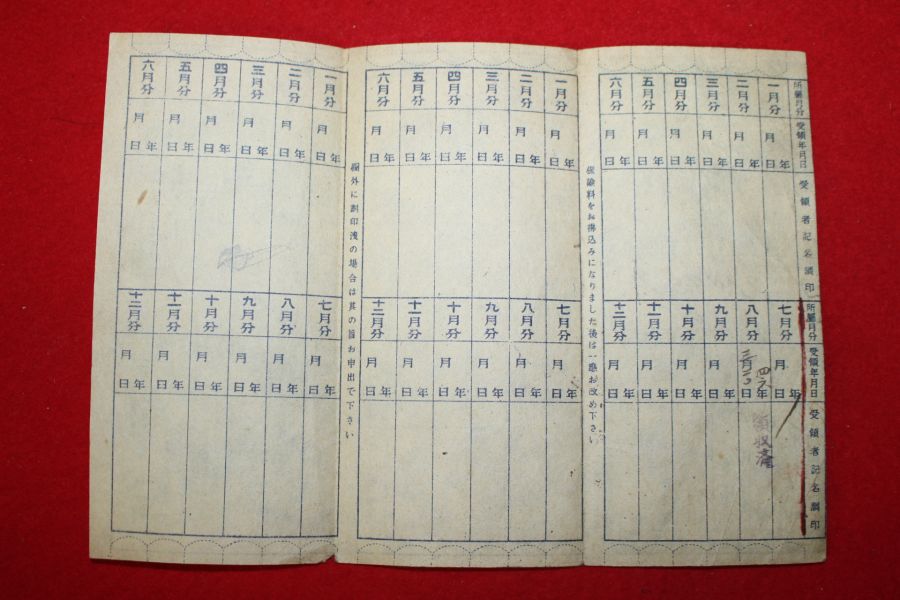 所屬月分 一月分 二月分 三月分 四月分 五月分 六月分
受領年月日 年月日 年月日 年月日 年月日 年月日 年月日
受領者記名調印
所屬月分 七月分 八月分 九月分 十月分 十一月分 十二月分
受領年月日 年月日 年月日 年月日 年月日 年月日 年月日
三月
領収済
受領者記名調印
保險料をお拂込みになりました後は一應お改め下さい
一月分 二月分 三月分 四月分 五月分 六月分
年月日 年月日 年月日 年月日 年月日 年月日
七月分 八月分 九月分 十月分 十一月分 十二月分
年月日 年月日 年月日 年月日 年月日 年月日
欄外に割印洩の場合は其の旨お申出で下さい
一月分 二月分 三月分 四月分 五月分 六月分
年月日 年月日 年月日 年月日 年月日 年月日
七月分 八月分 九月分 十月分 十一月分 十二月分
年月日 年月日 年月日 年月日 年月日 年月日